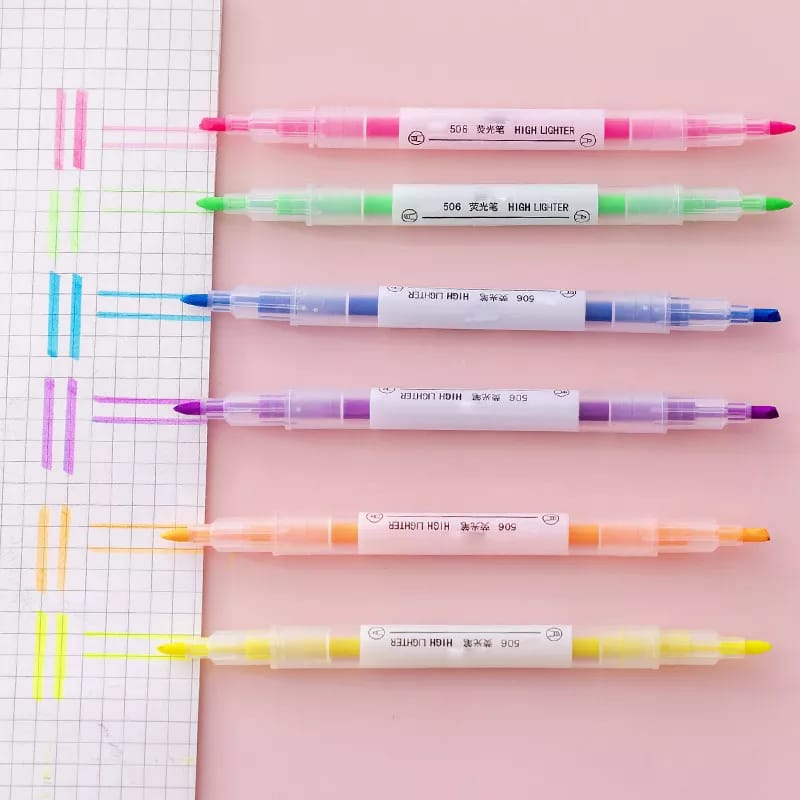 506 荧光笔 HIGH LIGHTER
B A
506 荧光笔 HIGH LIGHTER
B A
506 荧光笔 HIGH LIGHTER
B A
506 荧光笔 HIGH LIGHTER
B A
506 荧光笔 HIGH LIGHTER
B A
506 荧光笔 HIGH LIGHTER
B A